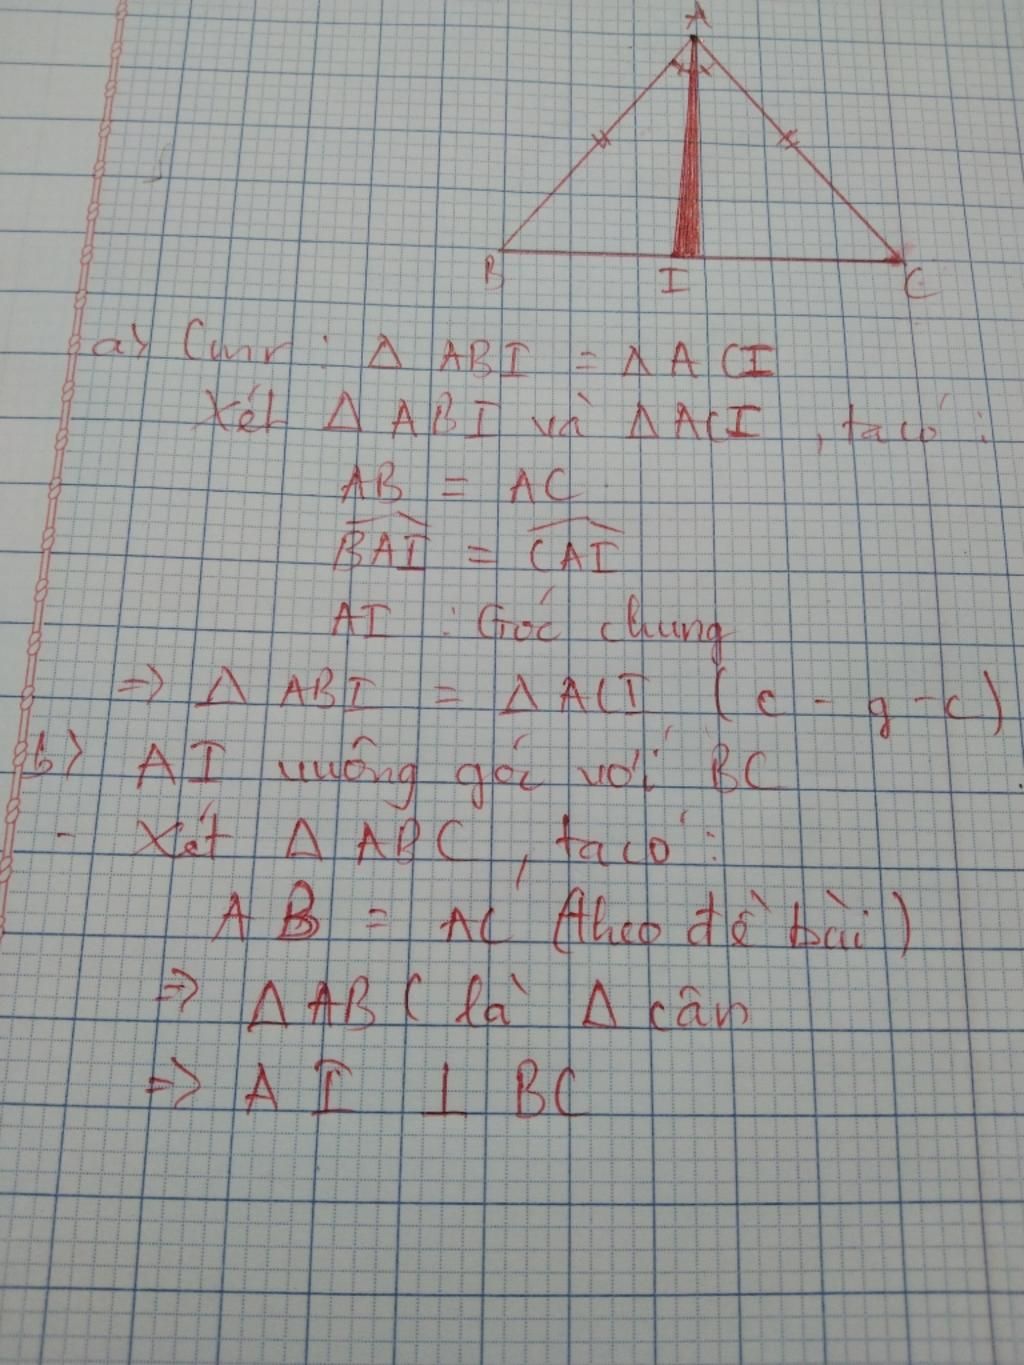 A
B
I
C
a) Cmr : Δ ABI = Δ ACI
Xét Δ ABI và Δ ACI , ta có :
AB = AC
BAI = CAI
AI : Góc chung
=> Δ ABI = Δ ACI ( c - g - c )
b) AI vuông góc với BC
- Xét Δ ABC , ta có :
AB = AC (theo đề bài)
=> Δ ABC là Δ cân
=> AI ⊥ BC